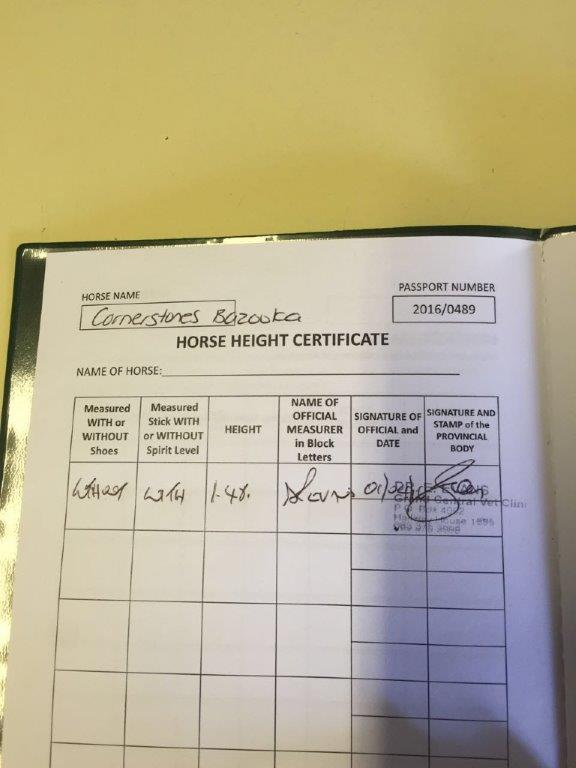 HORSE NAME
PASSPORT NUMBER
Cornerstones Bazooka
2016/0489
HORSE HEIGHT CERTIFICATE
NAME OF HORSE:
Measured WITH or WITHOUT Shoes
Measured Stick WITH or WITHOUT Spirit Level
HEIGHT
NAME OF OFFICIAL MEASURER in Block Letters
SIGNATURE OF OFFICIAL and DATE
SIGNATURE AND STAMP of the PROVINCIAL BODY
WITH
Central Vet Clini
P O Box
House